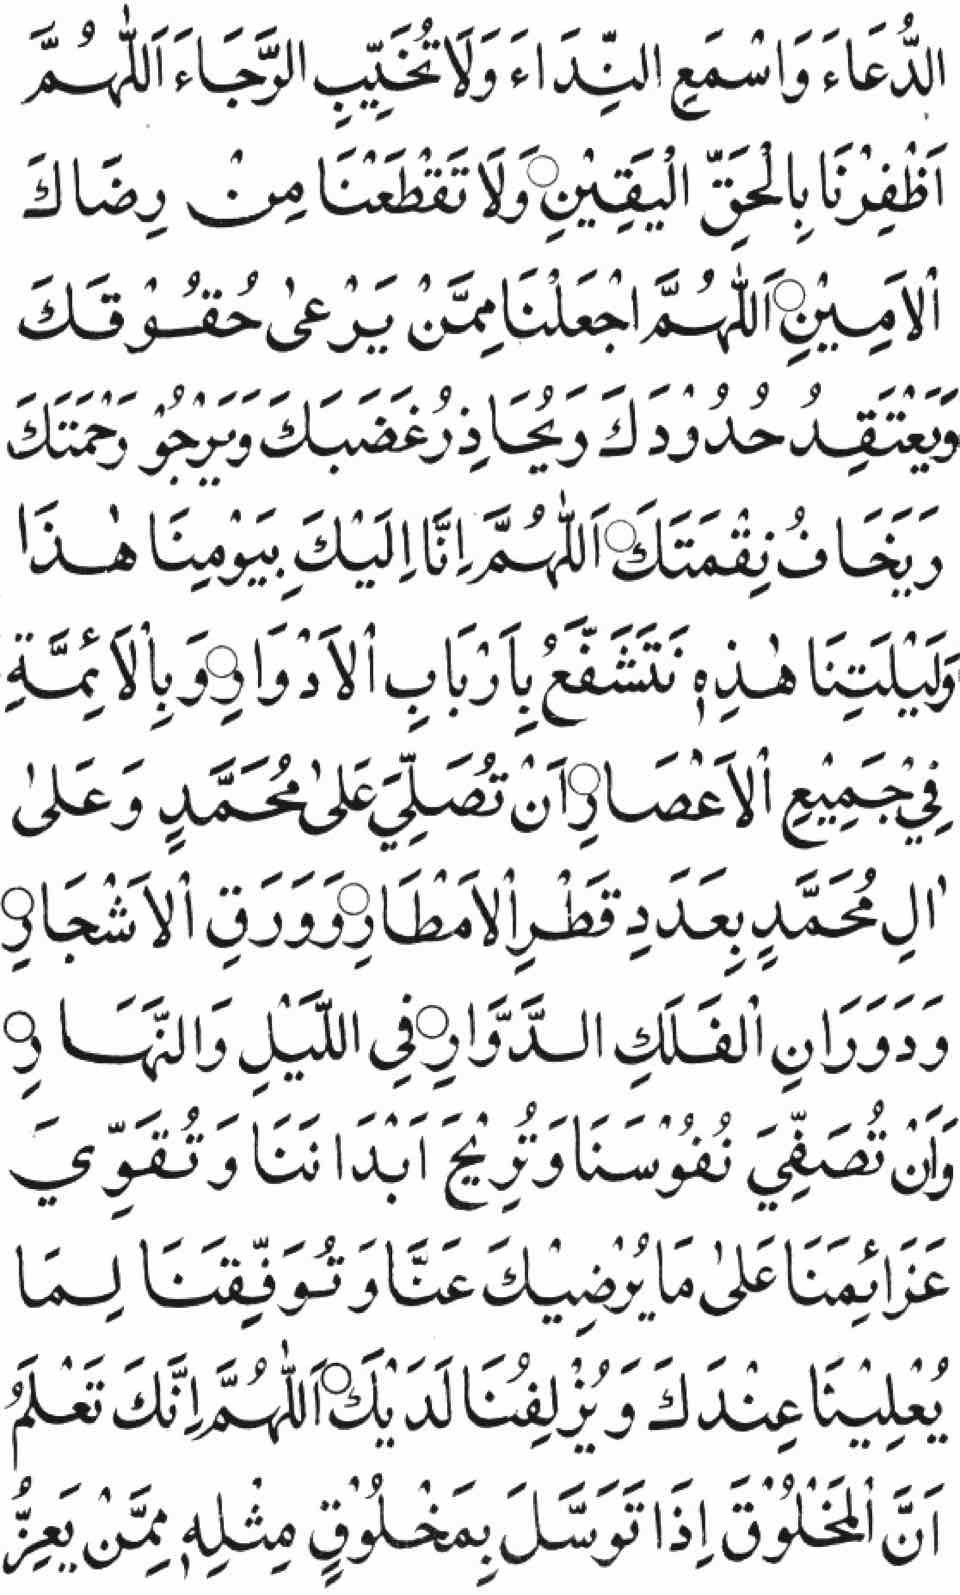 الدُّعَاءَ وَاسْمَعِ النِّدَاءَ وَلَا تُخَيِّبِ الرَّجَاءَ اَللّٰهُمَّ
اَظْفِرْنَا بِالْحَقِّ الْيَقِيْنِ○ وَلَا تَقْطَعْنَا مِنْ رِضَاكَ
الْاَمِيْنِ○ اَللّٰهُمَّ اجْعَلْنَا مِمَّنْ يَرْعىٰ حُقُوْقَكَ
وَيَعْتَقِدُ حُدُوْدَكَ وَيُحَاذِرُ غَضَبَكَ وَيَرْجُوْ رَحْمَتَكَ
وَيَخَافُ نِقْمَتَكَ○ اَللّٰهُمَّ اِنَّا اِلَيْكَ بِيَوْمِنَا هٰذَا
وَلَيْلَتِنَا هٰذِهٖ نَتَشَفَّعُ بِاَرْبَابِ الْاَدْوَارِ○ وَبِالْاَئِمَّةِ
فِيْ جَمِيْعِ الْاَعْصَارِ○ اَنْ تُصَلِّيَ عَلىٰ مُحَمَّدٍ وَعَلىٰ
اٰلِ مُحَمَّدٍ بِعَدَدِ قَطْرِ الْاَمْطَارِ○ وَوَرَقِ الْاَشْجَارِ○
وَدَوَرَانِ الْفَلَكِ الدَّوَّارِ○ فِي اللَّيْلِ وَالنَّهَارِ○
وَاَنْ تُصَفِّيَ نُفُوْسَنَا وَتُرِيْحَ اَبْدَانَنَا وَتُقَوِّيَ
عَزَائِمَنَا عَلىٰ مَا يُرْضِيْكَ عَنَّا وَتُوَفِّقَنَا لِمَا
يُعْلِيْنَا عِنْدَكَ وَيُزْلِفُنَا لَدَيْكَ○ اَللّٰهُمَّ اِنَّكَ تَعْلَمُ
اَنَّ الْمَخْلُوْقَ اِذَا تَوَسَّلَ بِمَخْلُوْقٍ مِثْلِهٖ مِمَّنْ يَعِزُّ